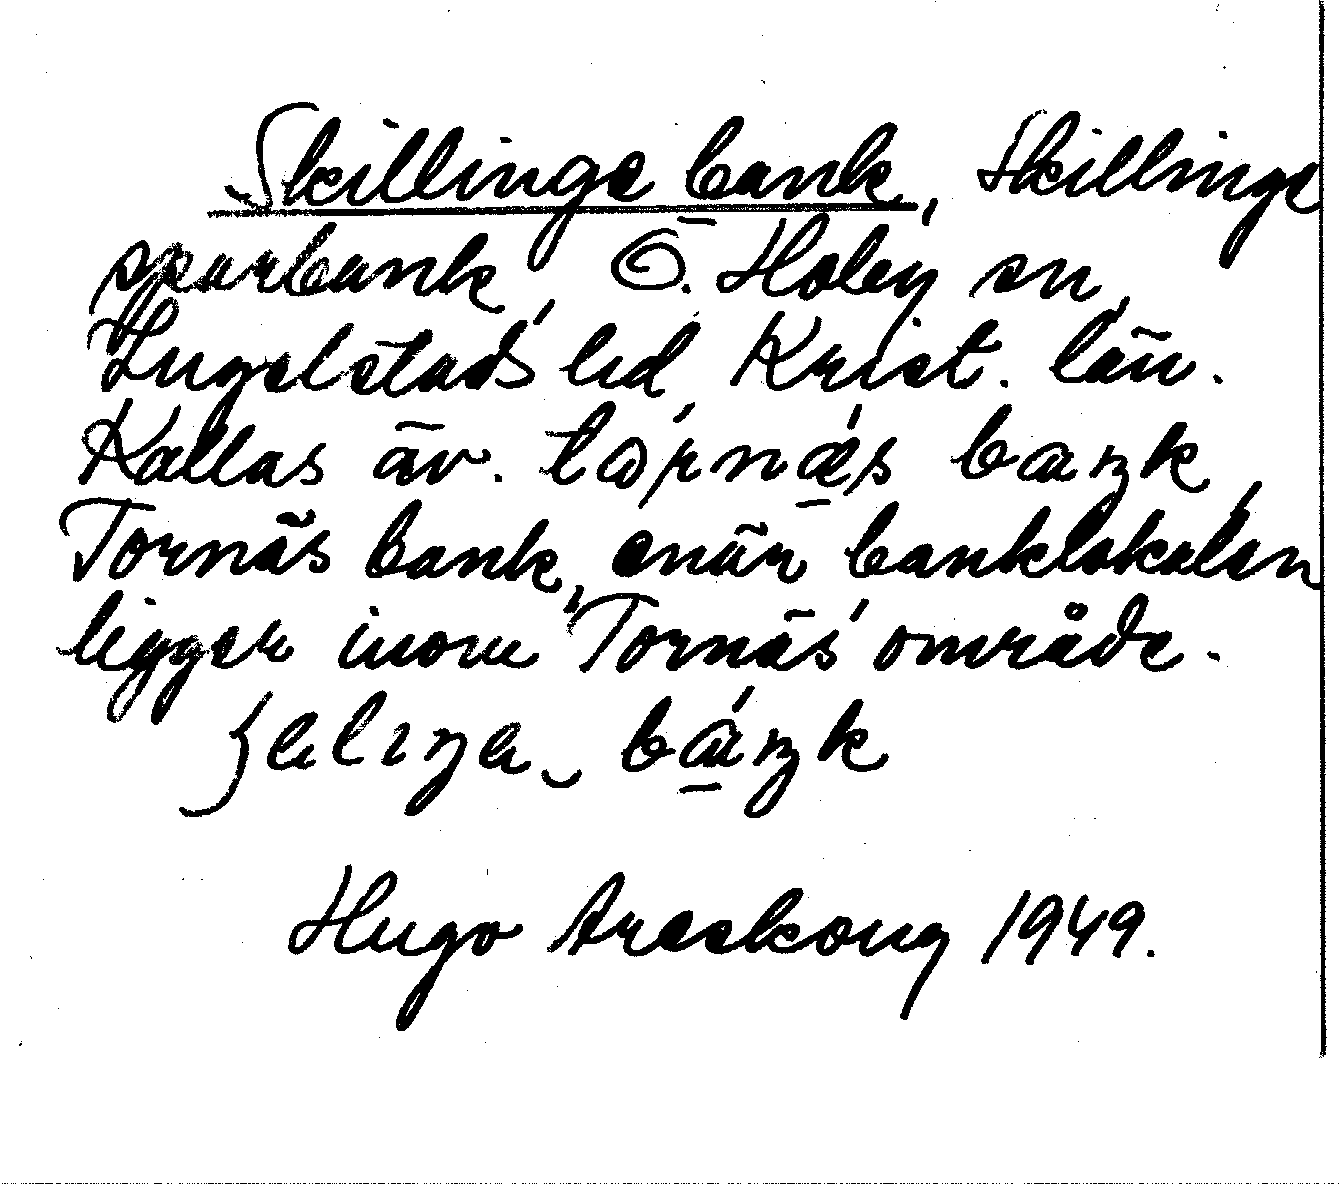 Skillinge bank, Skillinge
sparbank, Ö. Hoby sn,
Ingelstads hd, Krist. län.
Kallas äv.
Tornäs bank, enär banklokalen
ligger inom Tornäs område.
Hugo Areskoug 1949.